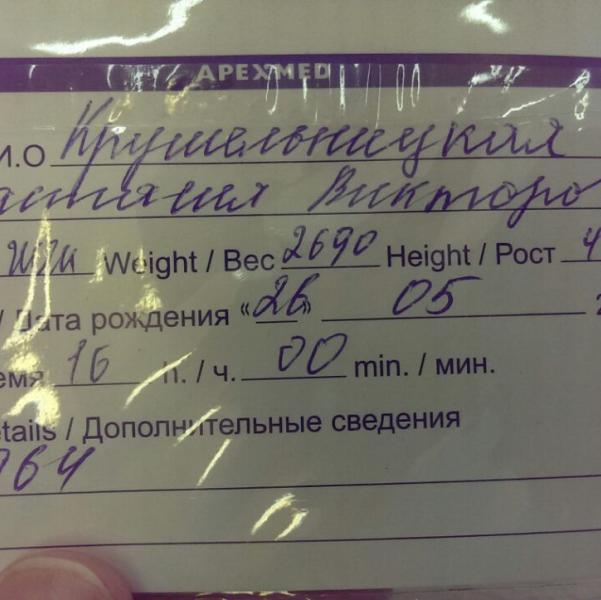 APEXMED
И.О Крушельницкая
астасия Викторо
Weight / Вес 2690 Height / Рост 4
/ Дата рождения «26» 05 2
емя 16 h. / ч. 00 min. / мин.
etails / Дополнительные сведения
964